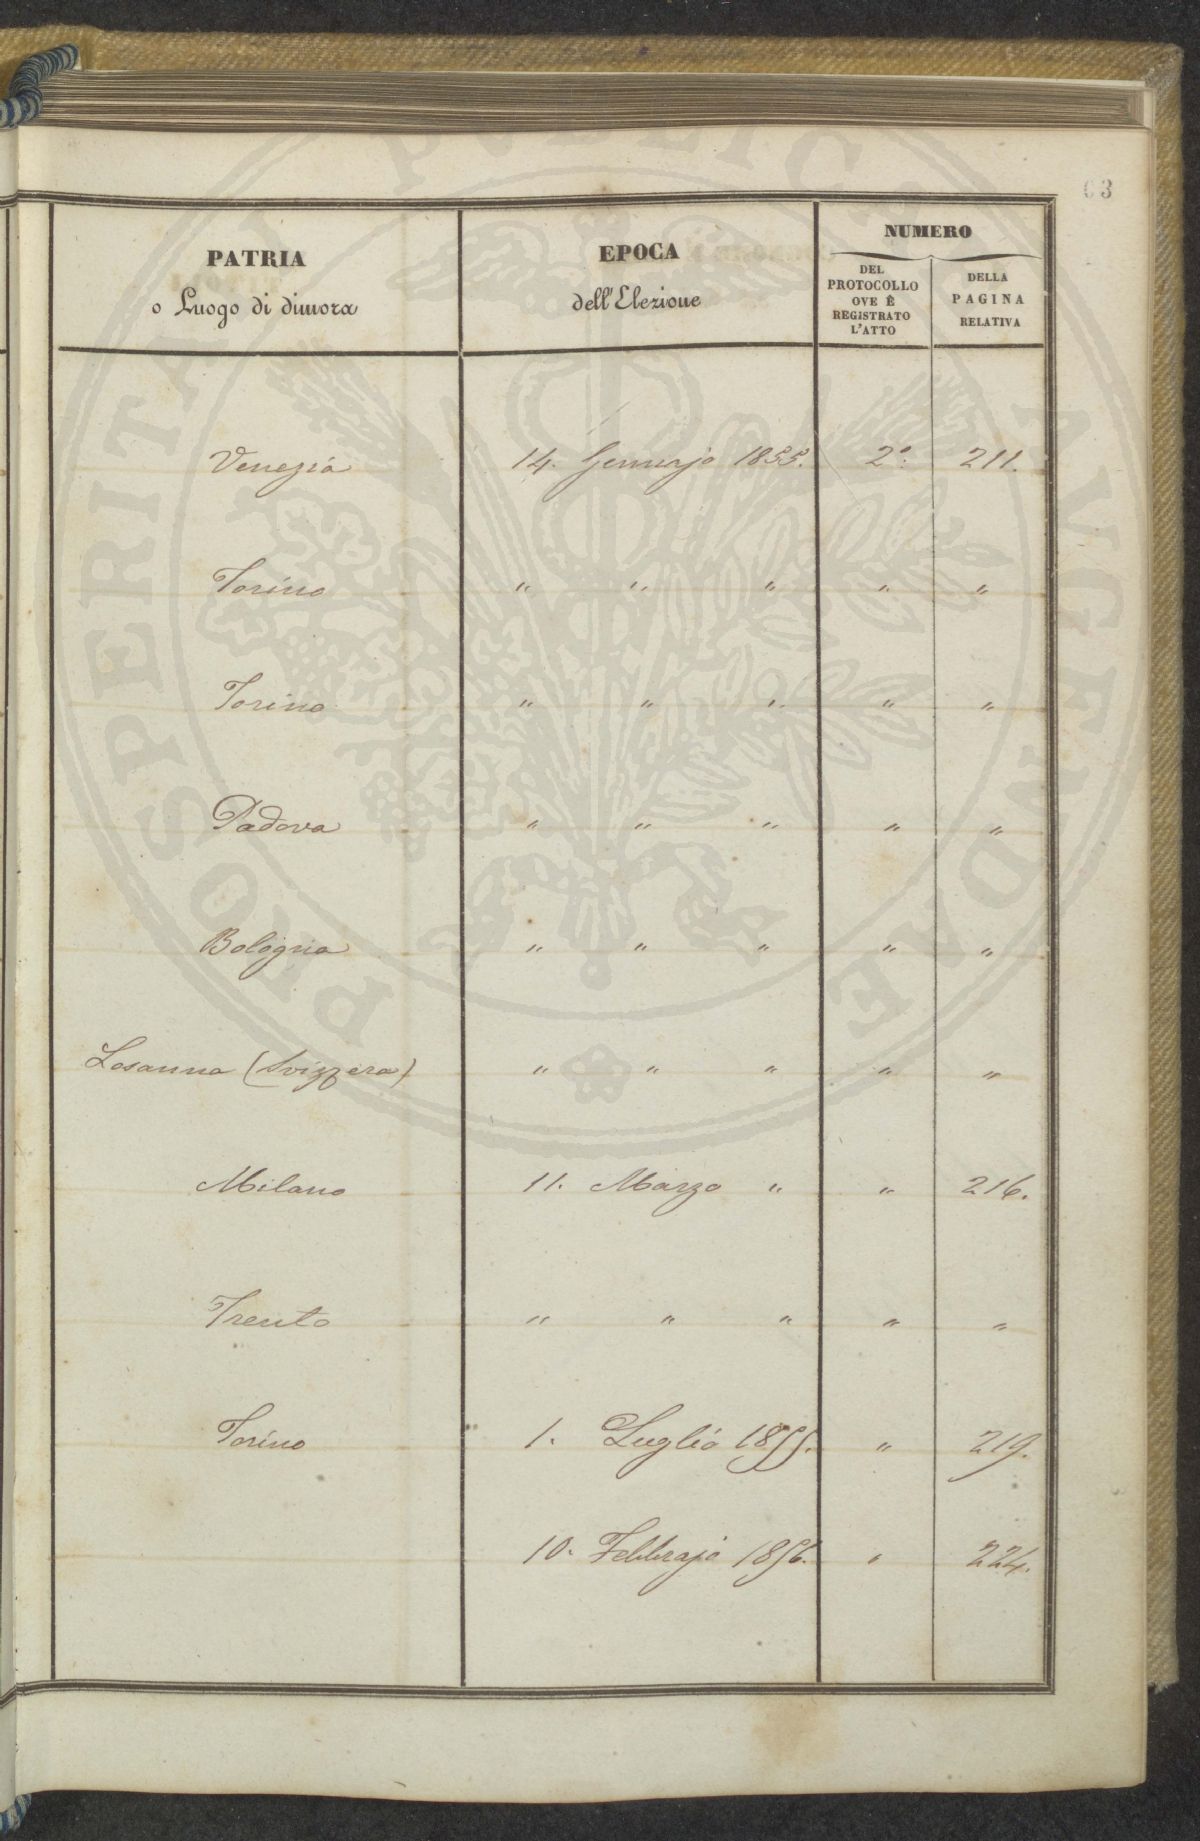 63
PATRIA
o Luogo di dimora
EPOCA
dell'Elezione
NUMERO
DEL
PROTOCOLLO
OVE È
REGISTRATO
L'ATTO
DELLA
PAGINA
RELATIVA
Venezia 14. Gennajo 1855. 2° 211.
Torino " " " " "
Torino " " " " "
Padova " " " " "
Bologna " " " " "
Losanna (Svizzera) " " " " "
Milano 11. Marzo " " 216.
Trento " " " " "
Torino 1. Luglio 1855. " 219.
10. Febbrajo 1856. " 224.
PROSPERITATI PUBLICAE AVGENDAE